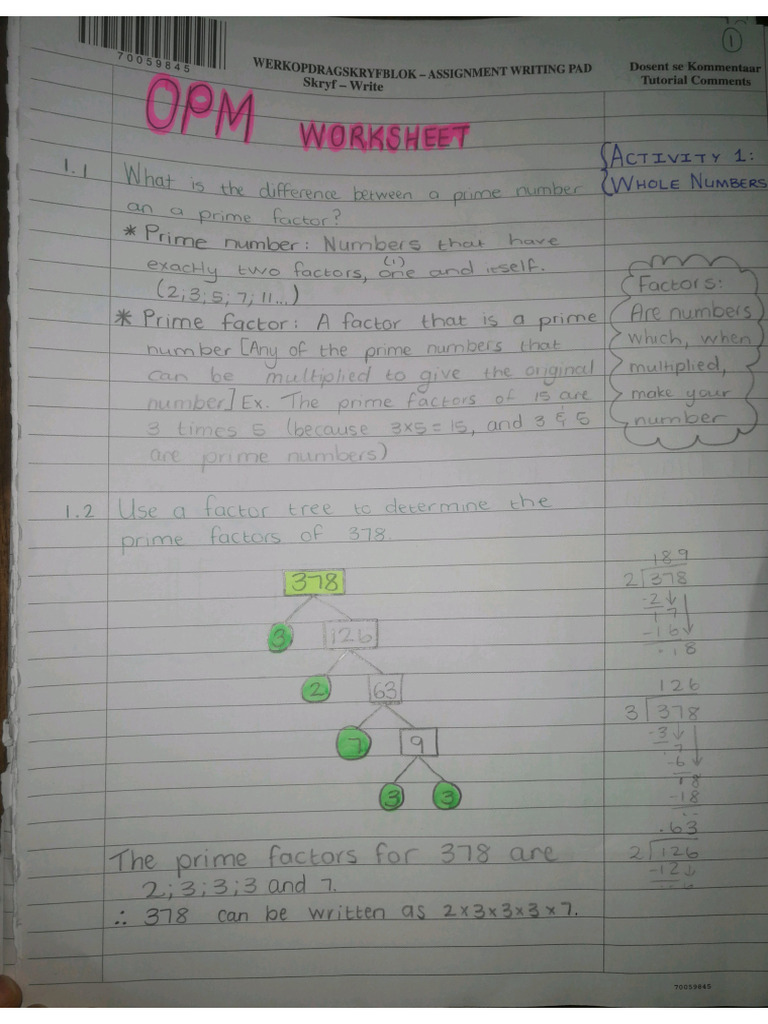 1
70059845
WERKOPDRAGSKRYFBLOK – ASSIGNMENT WRITING PAD
Skryf – Write
Dosent se Kommentaar
Tutorial Comments
OPM WORKSHEET
ACTIVITY 1:
WHOLE NUMBERS
1.1 What is the difference between a prime number
an a prime factor?
* Prime number: Numbers that have
exactly two factors, (1) one and itself.
(2; 3; 5; 7; 11...)
* Prime factor: A factor that is a prime
number [Any of the prime numbers that
can be multiplied to give the original
number] Ex. The prime factors of 15 are
3 times 5 (because 3×5=15, and 3 & 5
are prime numbers)
Factors:
Are numbers
which, when
multiplied,
make your
number
1.2 Use a factor tree to determine the
prime factors of 378.
378
3 126
2 63
7 9
3 3
189
2 378
-2
17
-16
18
126
3 378
-3
7
-6
18
-18
63
2 126
-12
The prime factors for 378 are
2; 3; 3; 3 and 7.
∴ 378 can be written as 2×3×3×3×7.
70059845